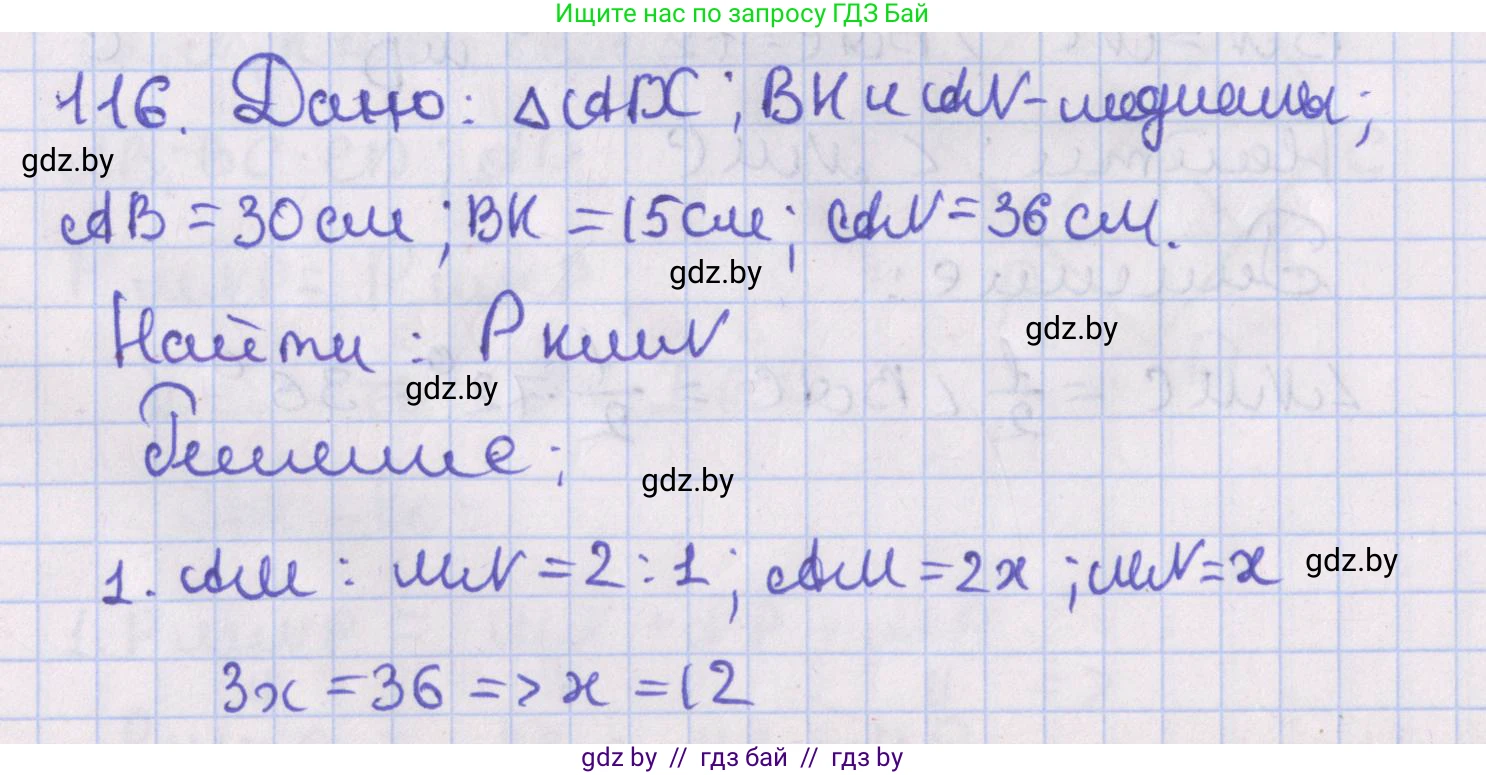 Ищите нас по запросу ГДЗ Бай
116. Дано: △ABC; BK и AN - медианы;
gdz.by
AB = 30 см; BK = 15 см; AN = 36 см.
gdz.by
gdz.by
Найти: P KMN
gdz.by
Решение:
gdz.by
1. AM : MN = 2 : 1; AM = 2x; MN = x
gdz.by
3x = 36 => x = 12
gdz.by // гдз бай // гдз by